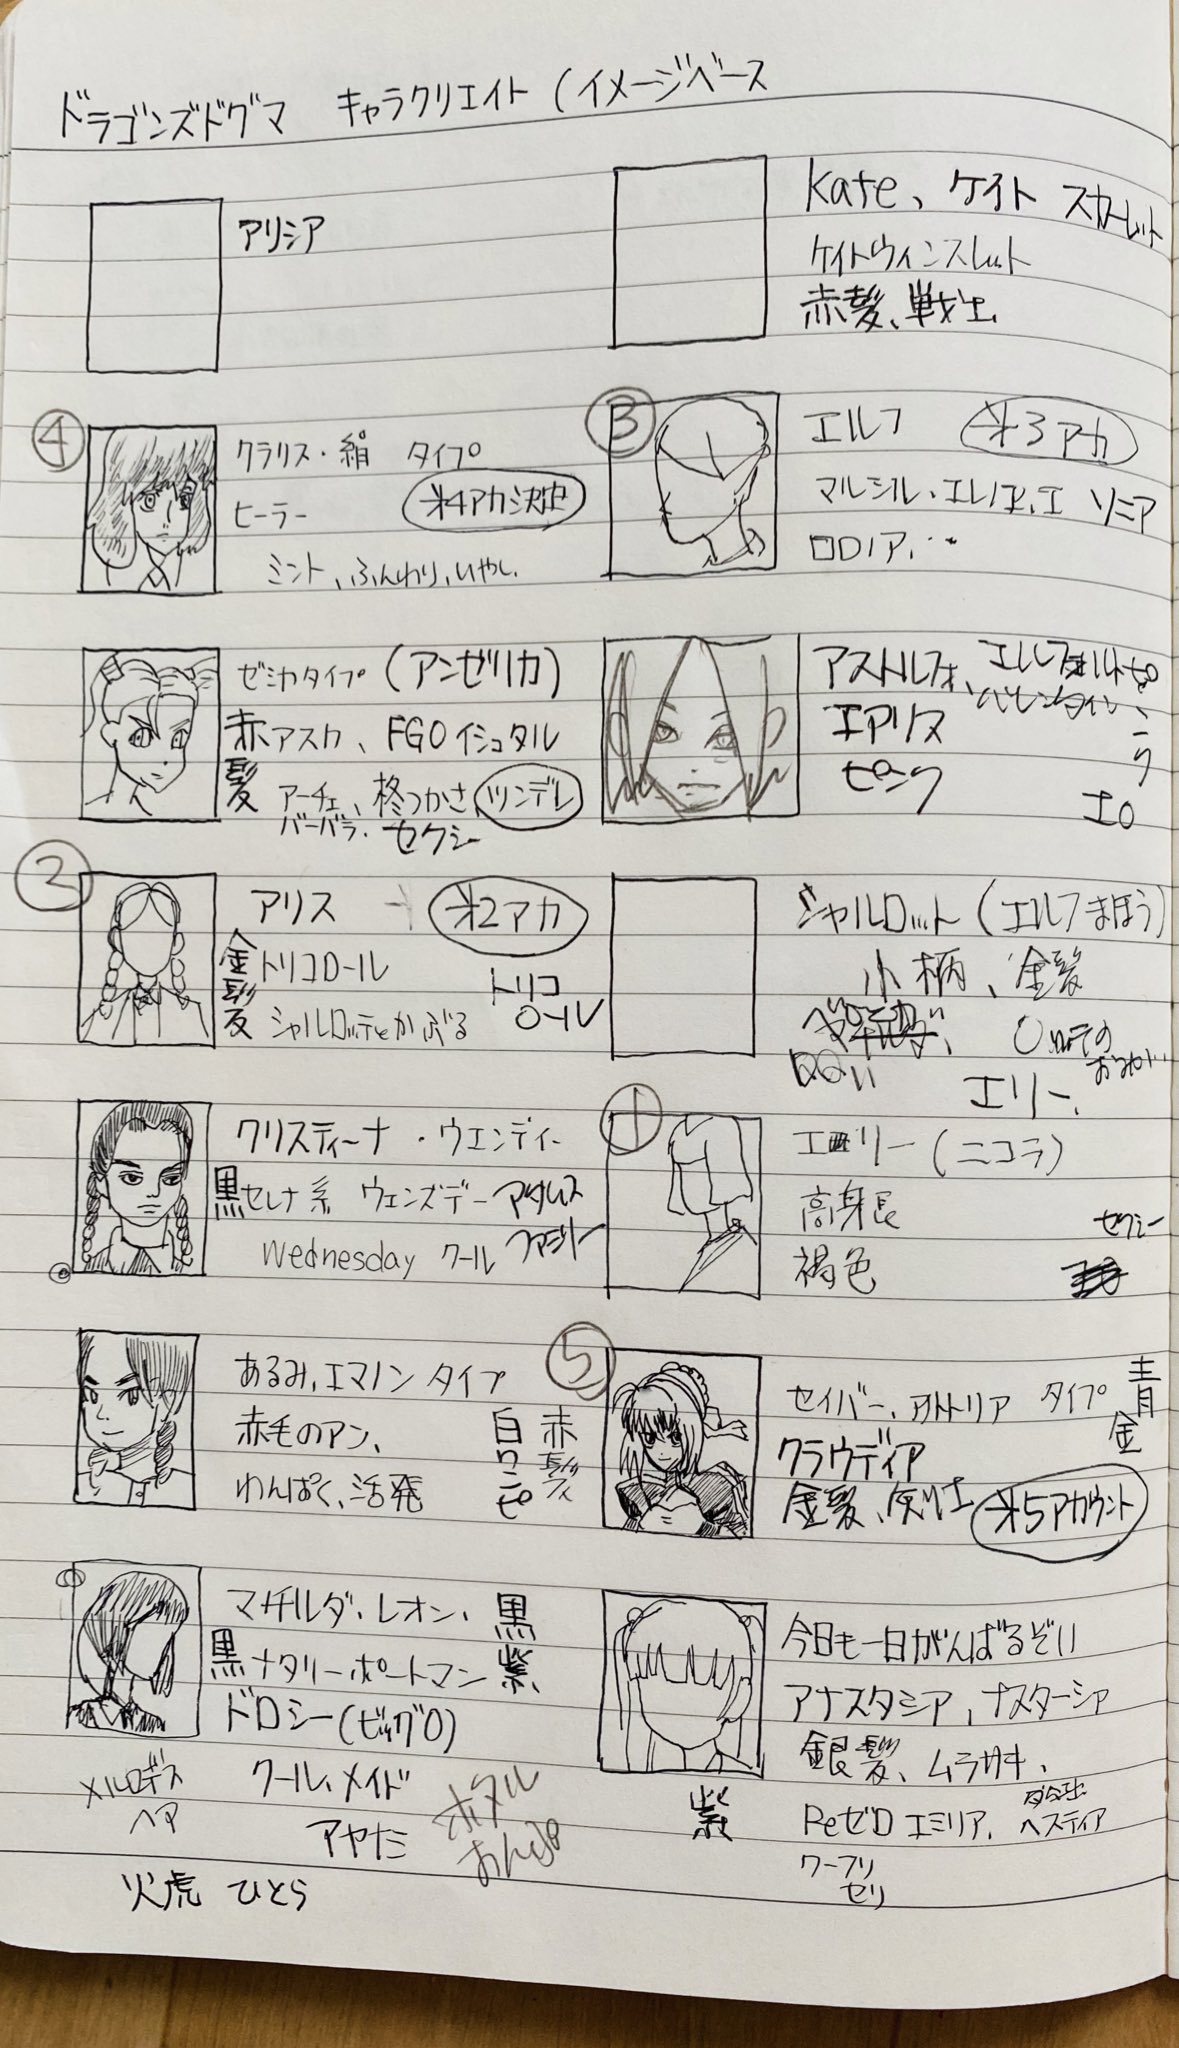 ドラゴンズドグマ キャラクリエイト (イメージベース
アリシア
Kate、ケイト スカーレット
ケイトウィンスレット
赤髪、戦士
④
クラリス・絹 タイプ
ヒーラー
オ4アカ決定
ミント、ふんわり、いやし
③
エルフ オ3アカ
マルシル・エレノア、エ ソニア
ロロノア、…
ゼシカタイプ (アンゼリカ)
赤髪
アスカ、FGOイシュタル
アーチェ、柊つかさ、ツンデレ
バーバラ、セクシー
アストルフォ、エルフォルト
バレンタイン
エアリス
ピンク
ピンク
エロ
②
アリス オ2アカ
金髪
トリコロール
トリコロール
シャルロッテとかぶる
シャルロット (エルフまほう)
小柄、金髪
エリー、
クリスティーナ・ウエンディー
黒
セレナ系 ウェンズデーアダムス
ファミリー
Wednesday クール
①
エリー (ニコラ)
高身長
褐色
セクシー
あるみ、エマノン タイプ
赤毛のアン、
わんぱく、活発
白ワンピ
赤髪
⑤
セイバー、アルトリア タイプ
青
金
クラウディア
金髪、
オ5アカウント
マチルダ、レオン、
黒紫
黒
ナタリーポートマン
ドロシー(ビッグO)
メルロデス
ヘア
クール、メイド
アヤナミ
ホタル
火虎 ひとら
今日も一日がんばるぞい
アナスタシア、ナスターシャ
銀髪、ムラサキ、
紫
Reゼロ エミリア、
ヘスティア
ワーフリ
セリ